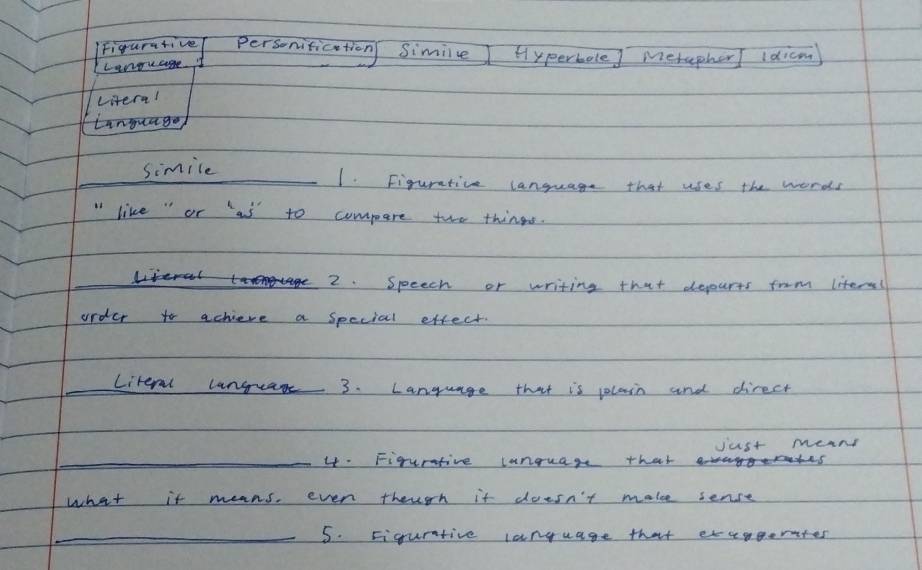 Figurative Personification Simile Hyperbole Metaphor Idiom
Language
Literal
Language
Simile 1. Figurative language that uses the words
"like" or "as" to compare two things.
Literal Language 2. Speech or writing that departs from literal
order to achieve a special effect.
Literal language 3. Language that is plain and direct
just means
4. Figurative language that exaggerates
what it means. even though it doesn't make sense
5. Figurative language that exaggerates